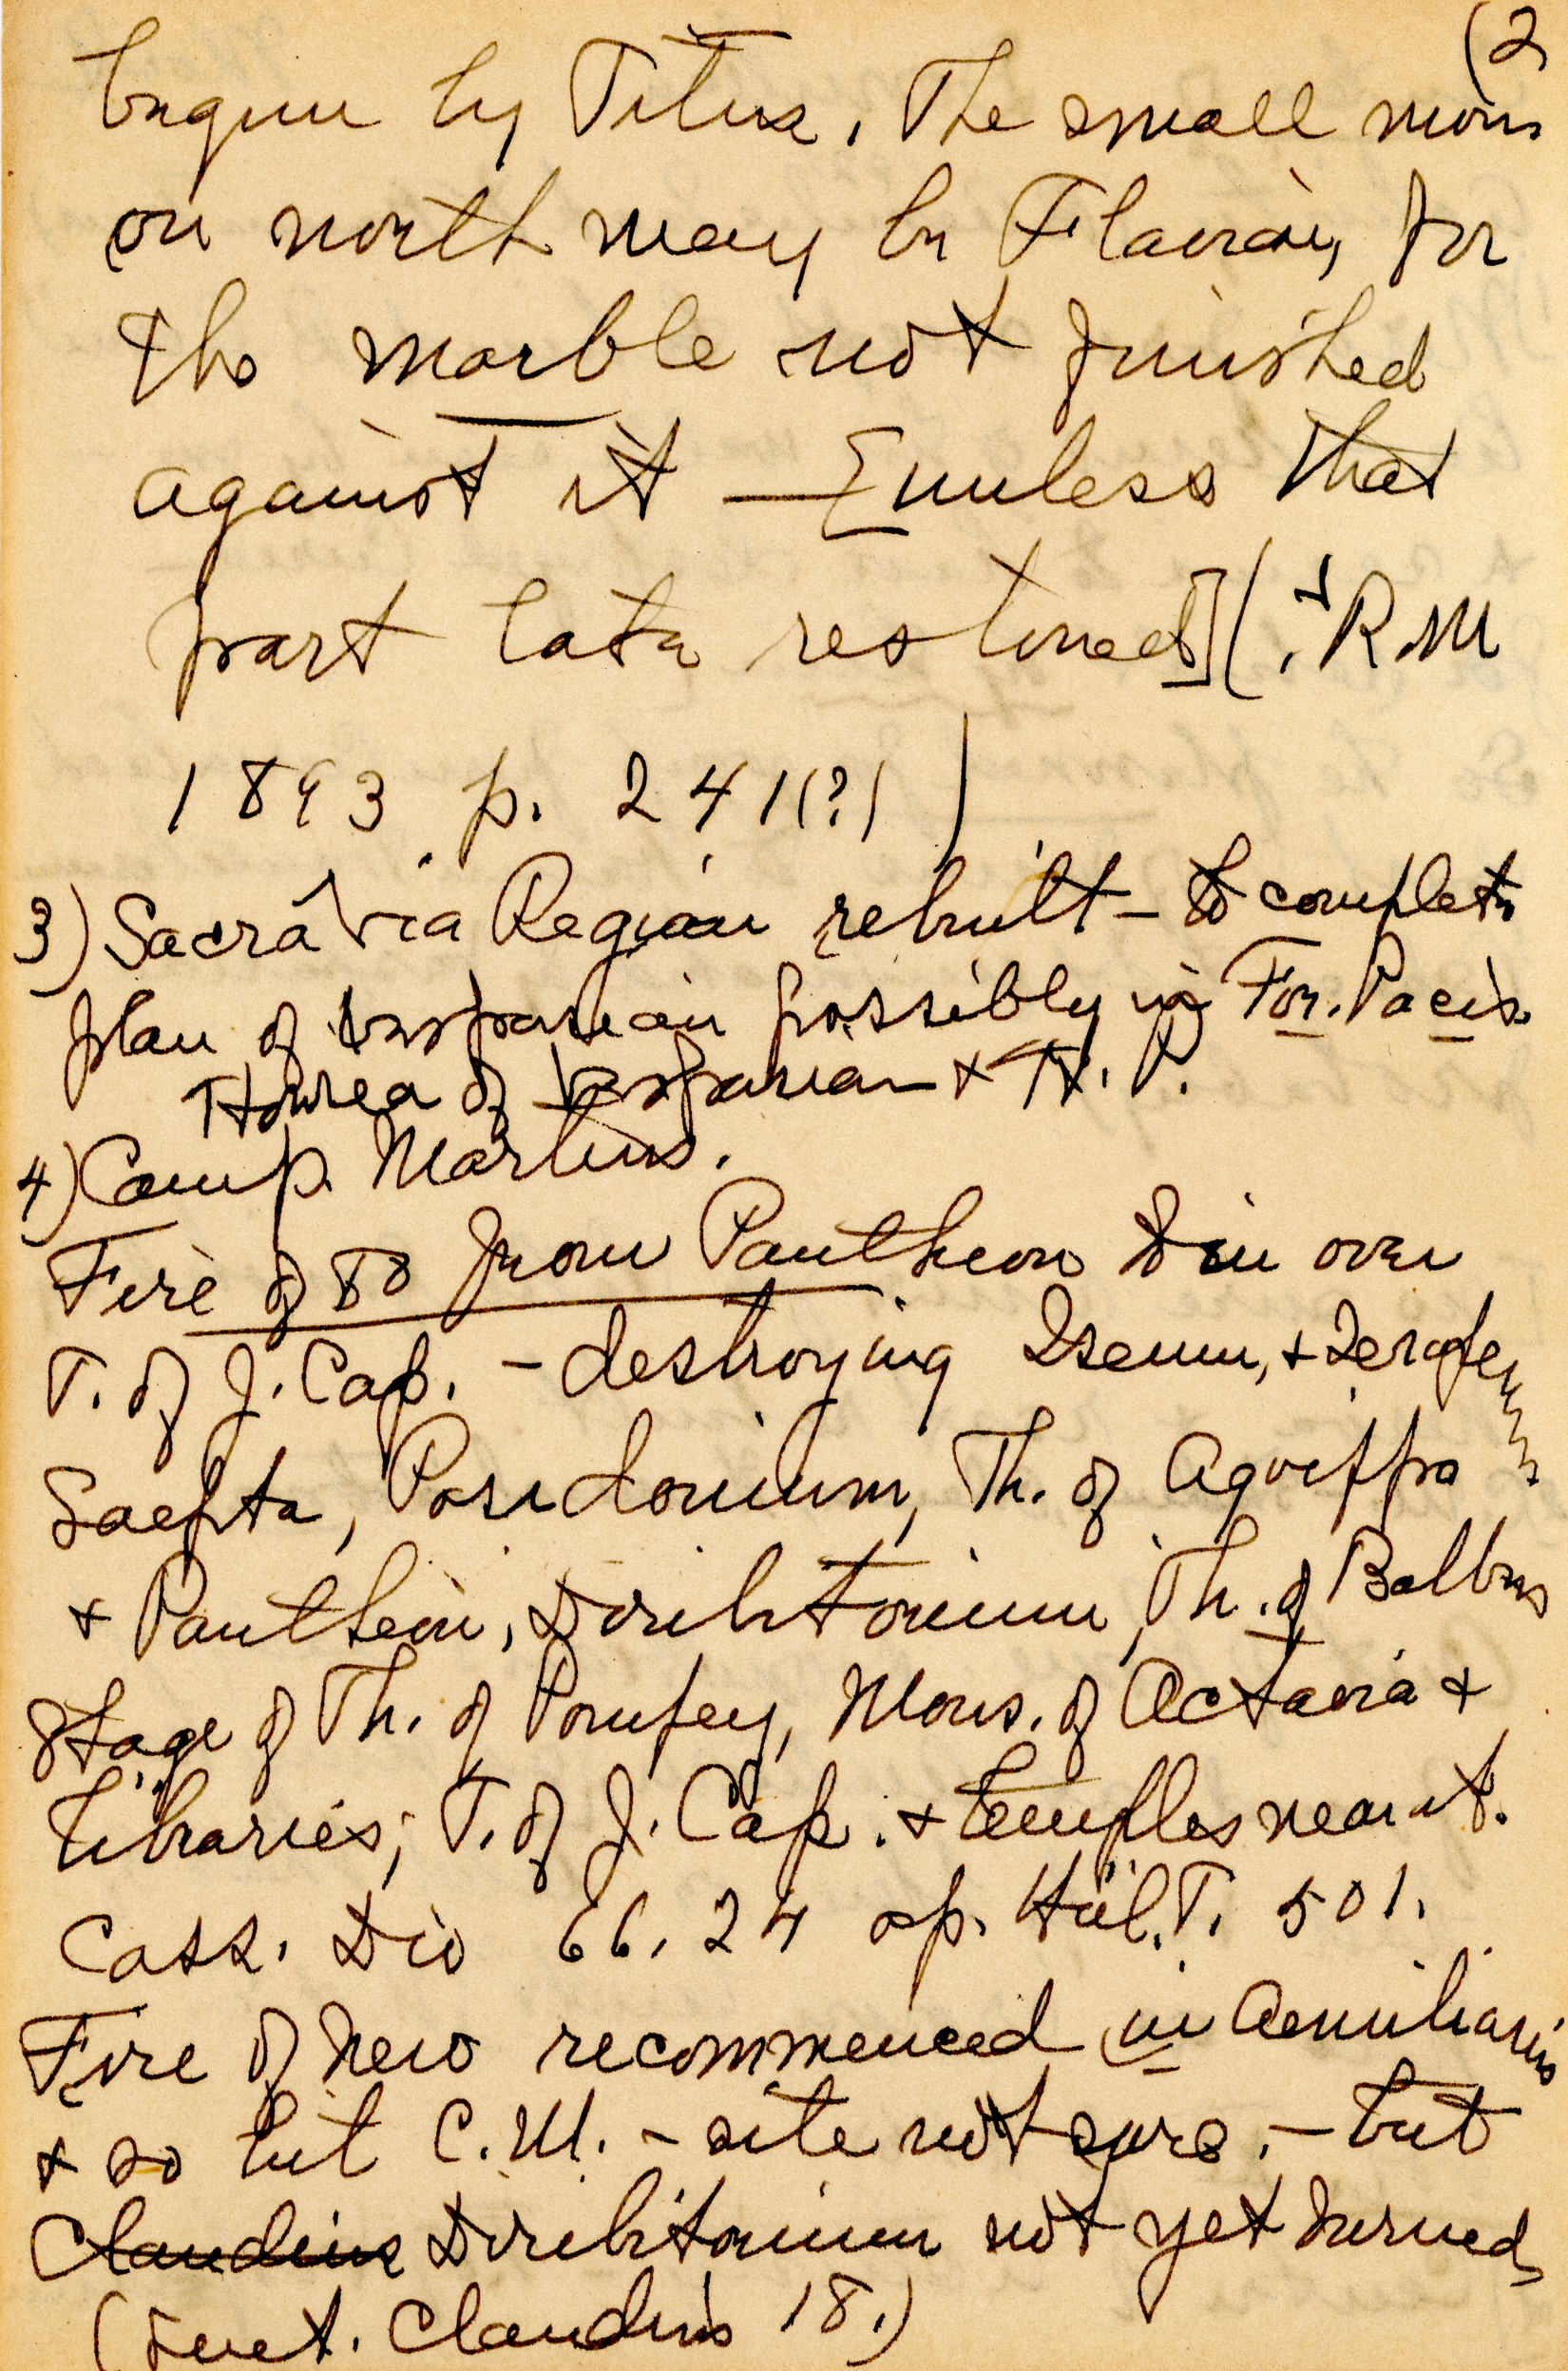 (2
begun by Titus. The small
on north may be Flavian, for
the marble not finished
against it — [unless that
part later restored] (. R.M
1893 p. 241(?) )
3) Sacra Via Region rebuilt – to complete
plan of Vespasian possibly in For. Pacis
Horrea of Vespasian + T. P.
4) Camp. Martius.
Fire of 80 from Pantheon to in over
T. of J. Cap. – destroying Iseum, + Serapeum
Saepta, Posidonium, Th. of Agrippa
+ Pantheon, Diribitorium, Th. of Balbus
Stage of Th. of Pompey, Mons. of Octavia +
libraries; T. of J. Cap. + temples near it.
Cass. Dio 66. 24 ap. Hül. T. 501.
Fire of Nero recommenced in Aemilianis
+ so hit C.M. – site not sure. – but
Claudius Diribitorium not yet burned
(Suet. Claudius 18.)